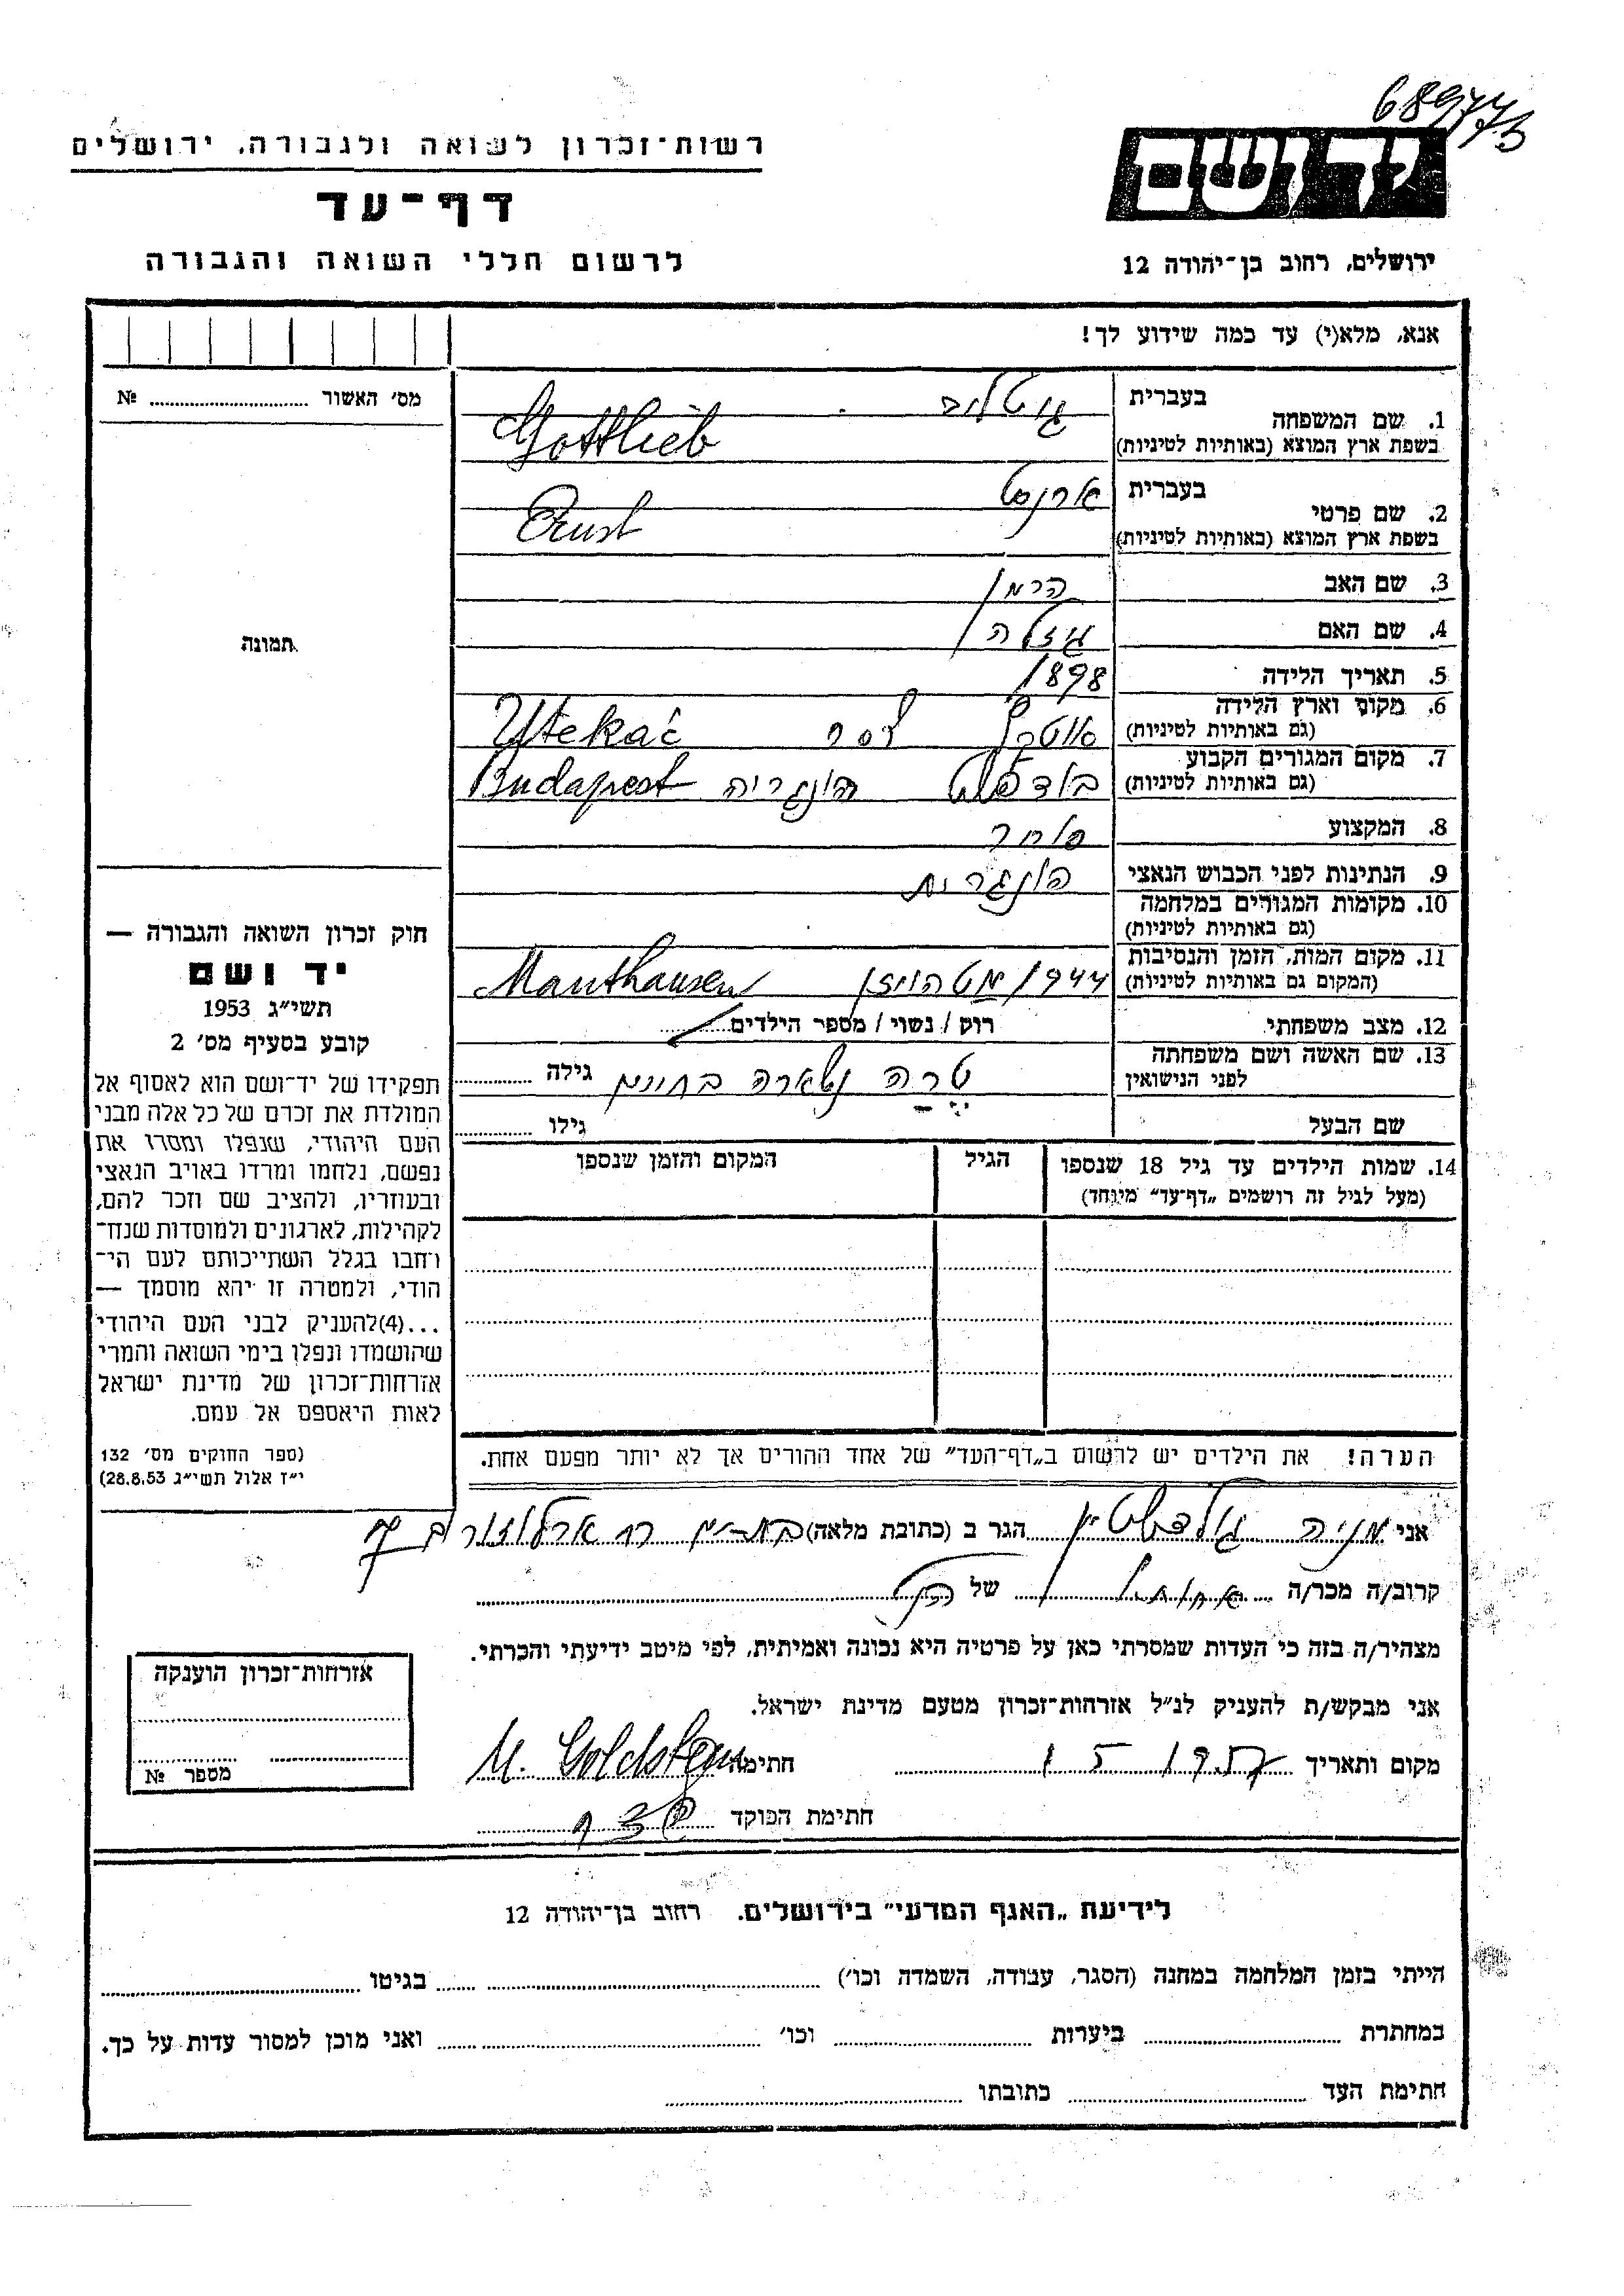 רשות־זכרון לשואה ולגבורה, ירושלים
דף־עד
לרשום חללי השואה והגבורה
יד ושם
ירושלים, רחוב בן־יהודה 12
אנא, מלא(י) עד כמה שידוע לך!
1. שם המשפחה
בעברית גוטליב
בשפת ארץ המוצא (באותיות לטיניות) Gottlieb
2. שם פרטי
בעברית ארנסט
בשפת ארץ המוצא (באותיות לטיניות) Ernst
3. שם האב הרמן
4. שם האם גיזלה
5. תאריך הלידה 1898
6. מקום וארץ הלידה
(גם באותיות לטיניות) Utekáč
7. מקום המגורים הקבוע
(גם באותיות לטיניות) בודפשט הונגריה Budapest
8. המקצוע סוחר
9. הנתינות לפני הכבוש הנאצי הונגרית
10. מקומות המגורים במלחמה
(גם באותיות לטיניות)
11. מקום המות, הזמן והנסיבות
(המקום גם באותיות לטיניות) 1944 מטהויזן Mauthausen
12. מצב משפחתי רווק / נשוי / מספר הילדים
13. שם האשה ושם משפחתה
לפני הנישואין גילה
שם הבעל גילו
14. שמות הילדים עד גיל 18 שנספו הגיל המקום והזמן שנספו
(מעל לגיל זה רושמים „דף־עד״ מיוחד)
הערה! את הילדים יש לרשום ב„דף־העד״ של אחד ההורים אך לא יותר מפעם אחת.
מס׳ האשור №
תמונה
חוק זכרון השואה והגבורה —
יד ושם
תשי״ג 1953
קובע בסעיף מס׳ 2
תפקידו של יד־ושם הוא לאסוף אל
המולדת את זכרם של כל אלה מבני
העם היהודי, שנפלו ומסרו את
נפשם, נלחמו ומרדו באויב הנאצי
ובעוזריו, ולהציב שם וזכר להם,
לקהילות, לארגונים ולמוסדות שנח־
רבו בגלל השתייכותם לעם הי־
הודי, ולמטרה זו יהא מוסמך —
...(4)להעניק לבני העם היהודי
שהושמדו ונפלו בימי השואה והמרי
אזרחות־זכרון של מדינת ישראל
לאות היאספם אל עמם.
(ספר החוקים מס׳ 132
י״ז אלול תשי״ג 28.8.53)
אני מניה גולדשטיין הגר ב (כתובת מלאה) בת-ים רח ארלוזורוב 7
קרוב/ה מכר/ה של
מצהיר/ה בזה כי העדות שמסרתי כאן על פרטיה היא נכונה ואמיתית, לפי מיטב ידיעתי והכרתי.
אני מבקש/ת להעניק לנ״ל אזרחות־זכרון מטעם מדינת ישראל.
מקום ותאריך 1 5 1957 חתימה M. Goldstein
חתימת הפוקד
אזרחות־זכרון הוענקה
מספר №
לידיעת „האגף המדעי״ בירושלים. רחוב בן־יהודה 12
הייתי בזמן המלחמה במחנה (הסגר, עבודה, השמדה וכו׳) בגיטו
במחתרת ביערות וכו׳ ואני מוכן למסור עדות על כך.
חתימת העד כתובתו